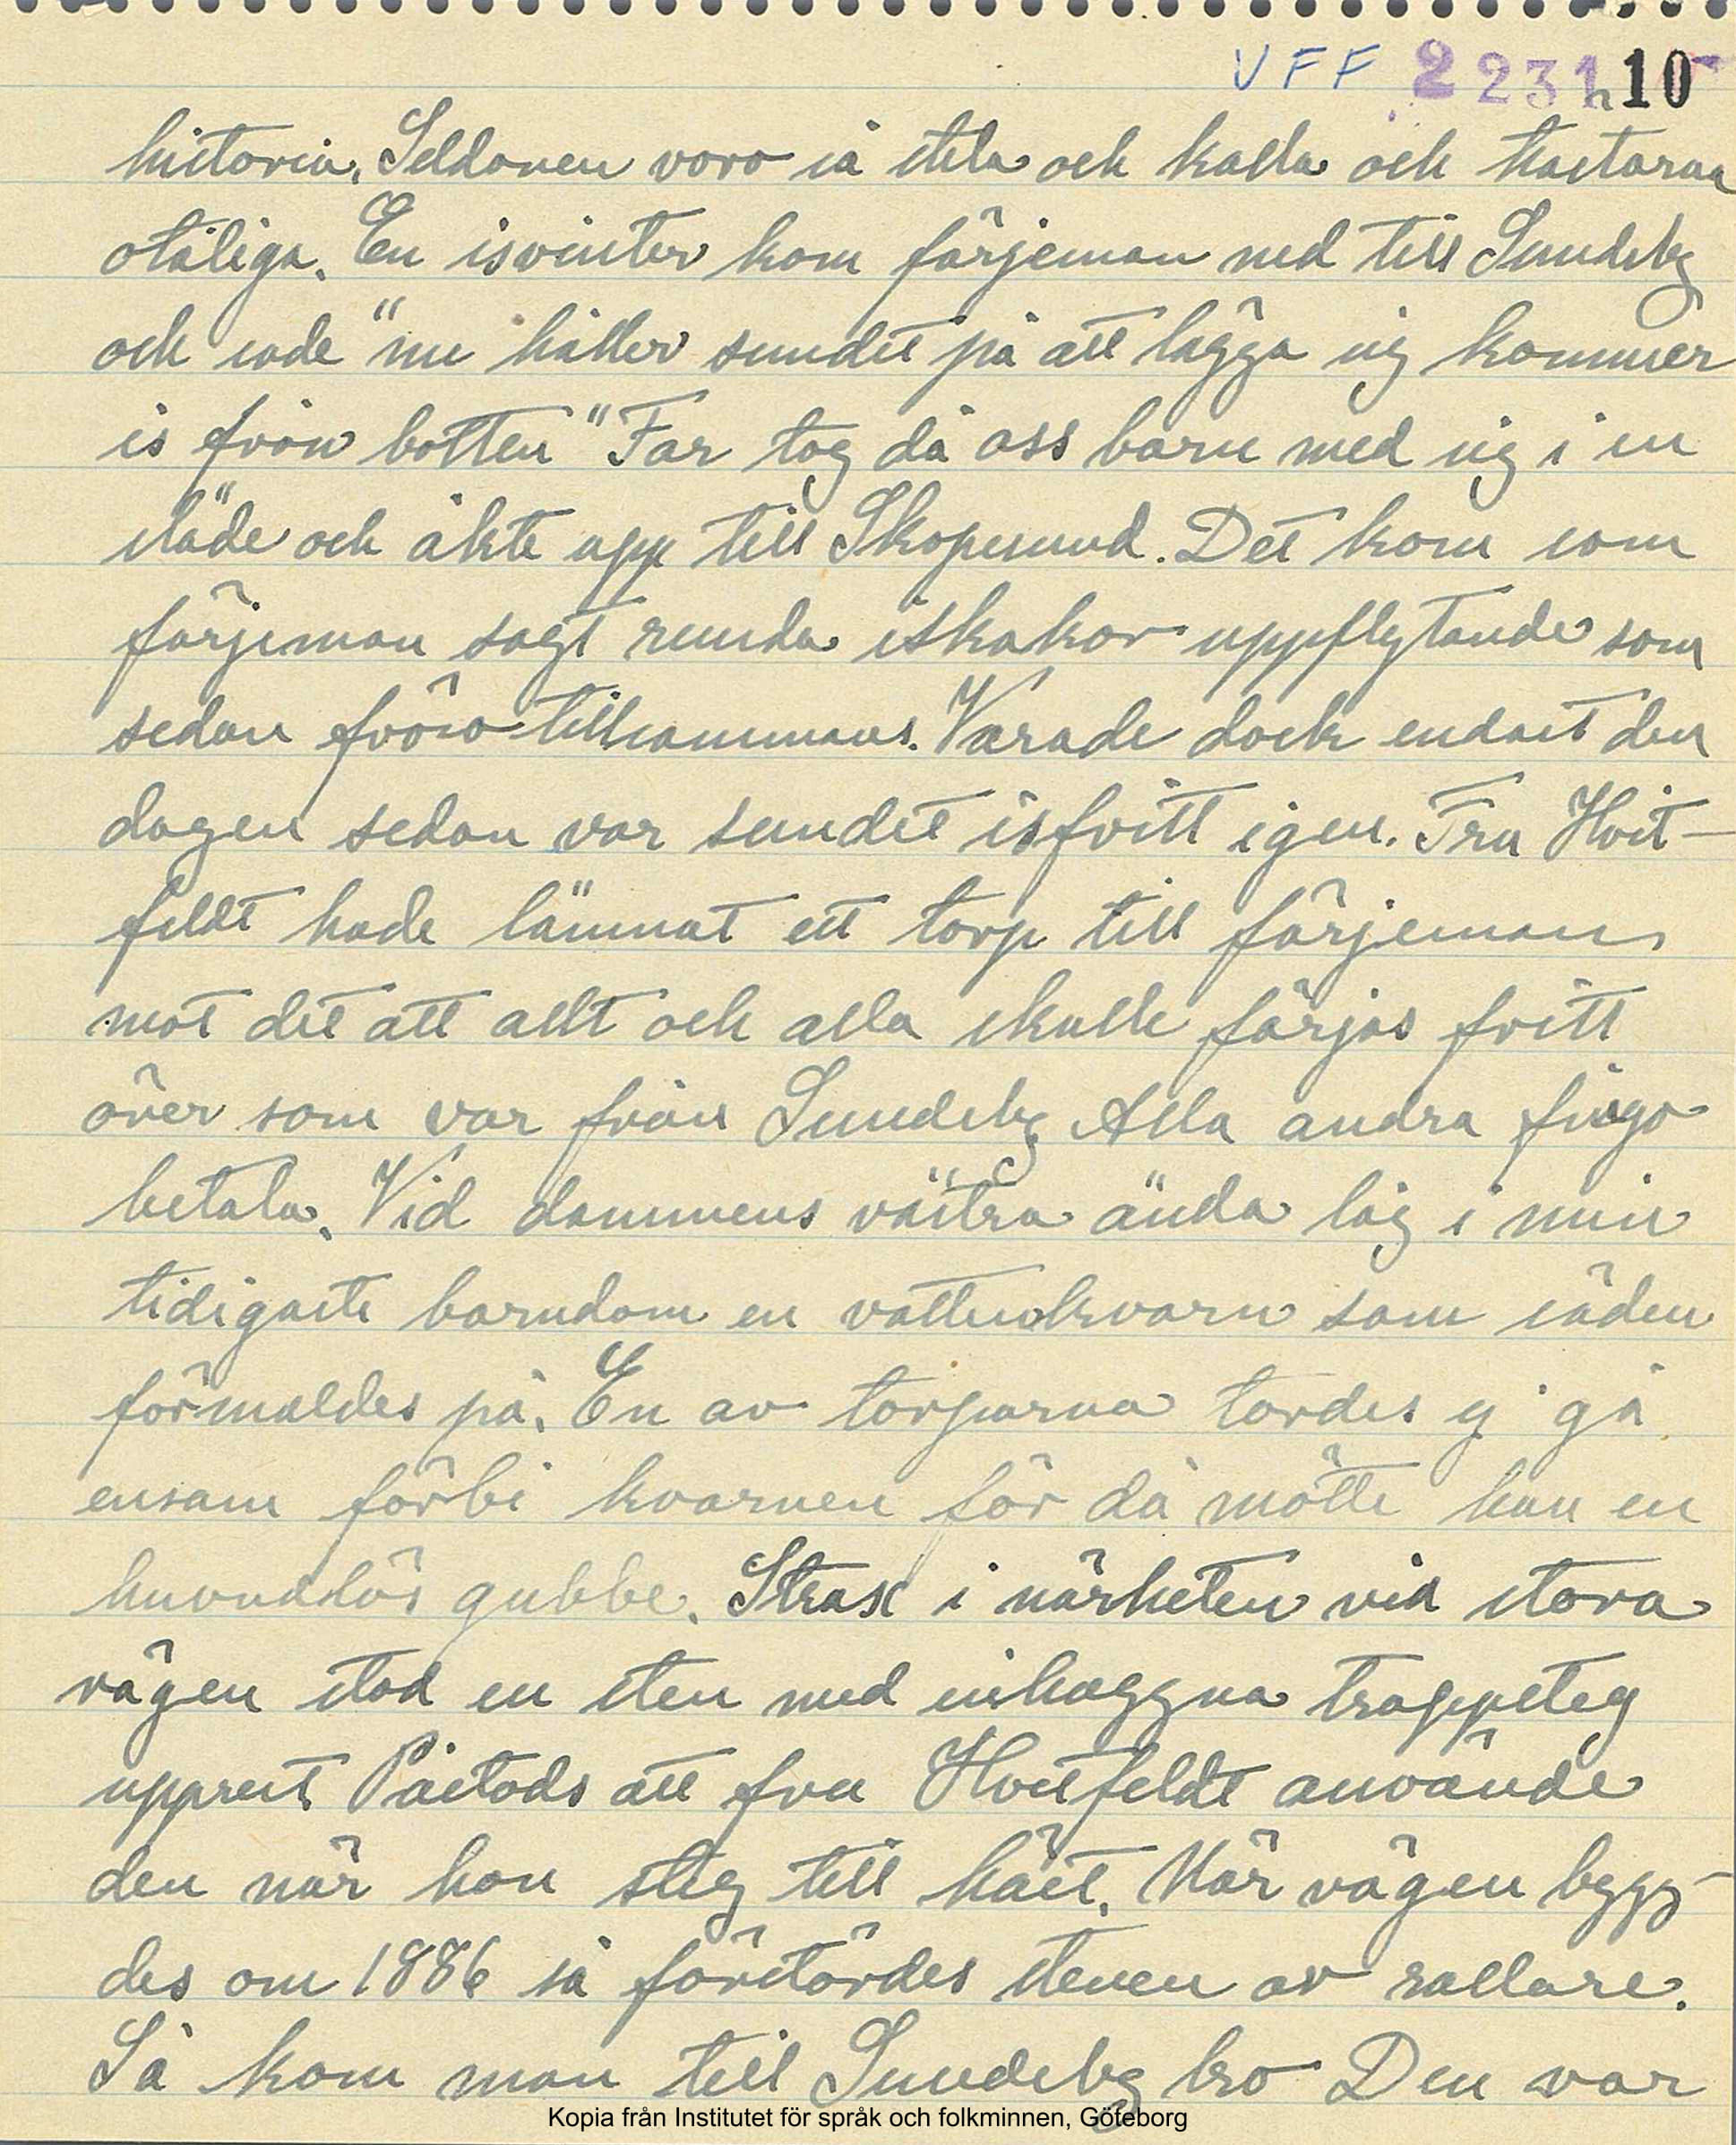 VFF 2231 10
historia. Seldonen voro så stela och kalla och hästarna
otåliga. En isvinter kom färjeman ned till Sundsby
och sade "nu håller sundet på att lägga sig kommer
is från botten" Far tog då oss barn med sig i en
släde och åkte upp till Skåpesund. Det kom som
färjeman sagt runda iskakor uppflytande som
sedan frös tillsammans. Varade dock endast den
dagen sedan var sundet isfritt igen. Fru Hvit-
feldt hade lämnat ett torp till färjeman
mot det att allt och alla skulle färjas fritt
över som var från Sundsby Alla andra fingo
betala. Vid dammens västra ända låg i min
tidigaste barndom en vattenkvarn som säden
förmaldes på. En av torparna tordes ej gå
ensam förbi kvarnen för då mötte han en
huvudlös gubbe. Strax i närheten vid stora
vägen stod en sten med inhuggna trappsteg
upprest Påstods att fru Hvitfeldt använde
den när hon steg till häst. När vägen bygg-
des om 1886 så förstördes stenen av rallare.
Så kom man till Sundsby bro Den var
Kopia från Institutet för språk och folkminnen, Göteborg